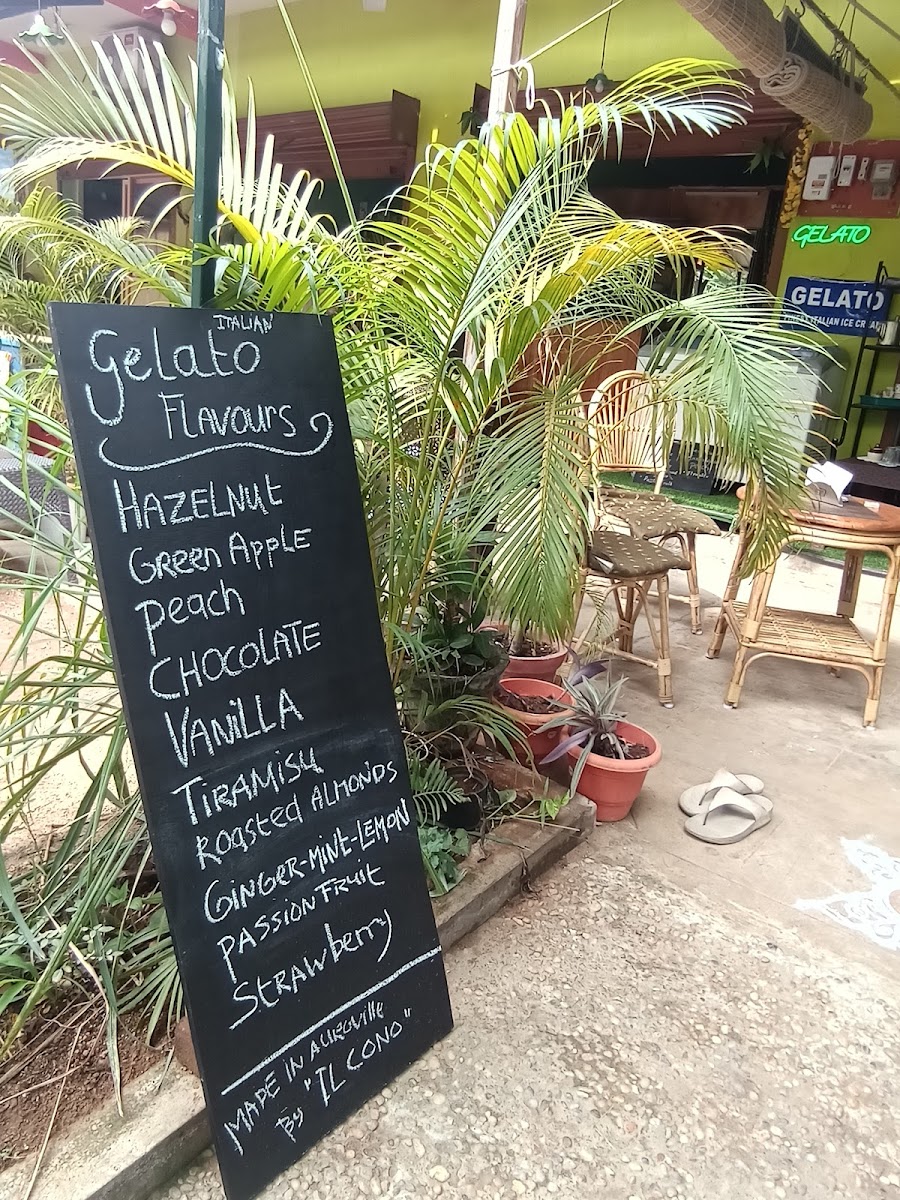 ITALIAN
Gelato
Flavours
HAZELNUt
Green Apple
Peach
CHOCOLATE
VANILLA
TIRAMISU
Roasted ALMONDS
GINGER-MINT-LEMON
PASSION FRUIT
STRAWberry
MADE IN AUROVILLE
By "IL CONO"
GELATO
GELATO
ITALIAN ICE CREAM